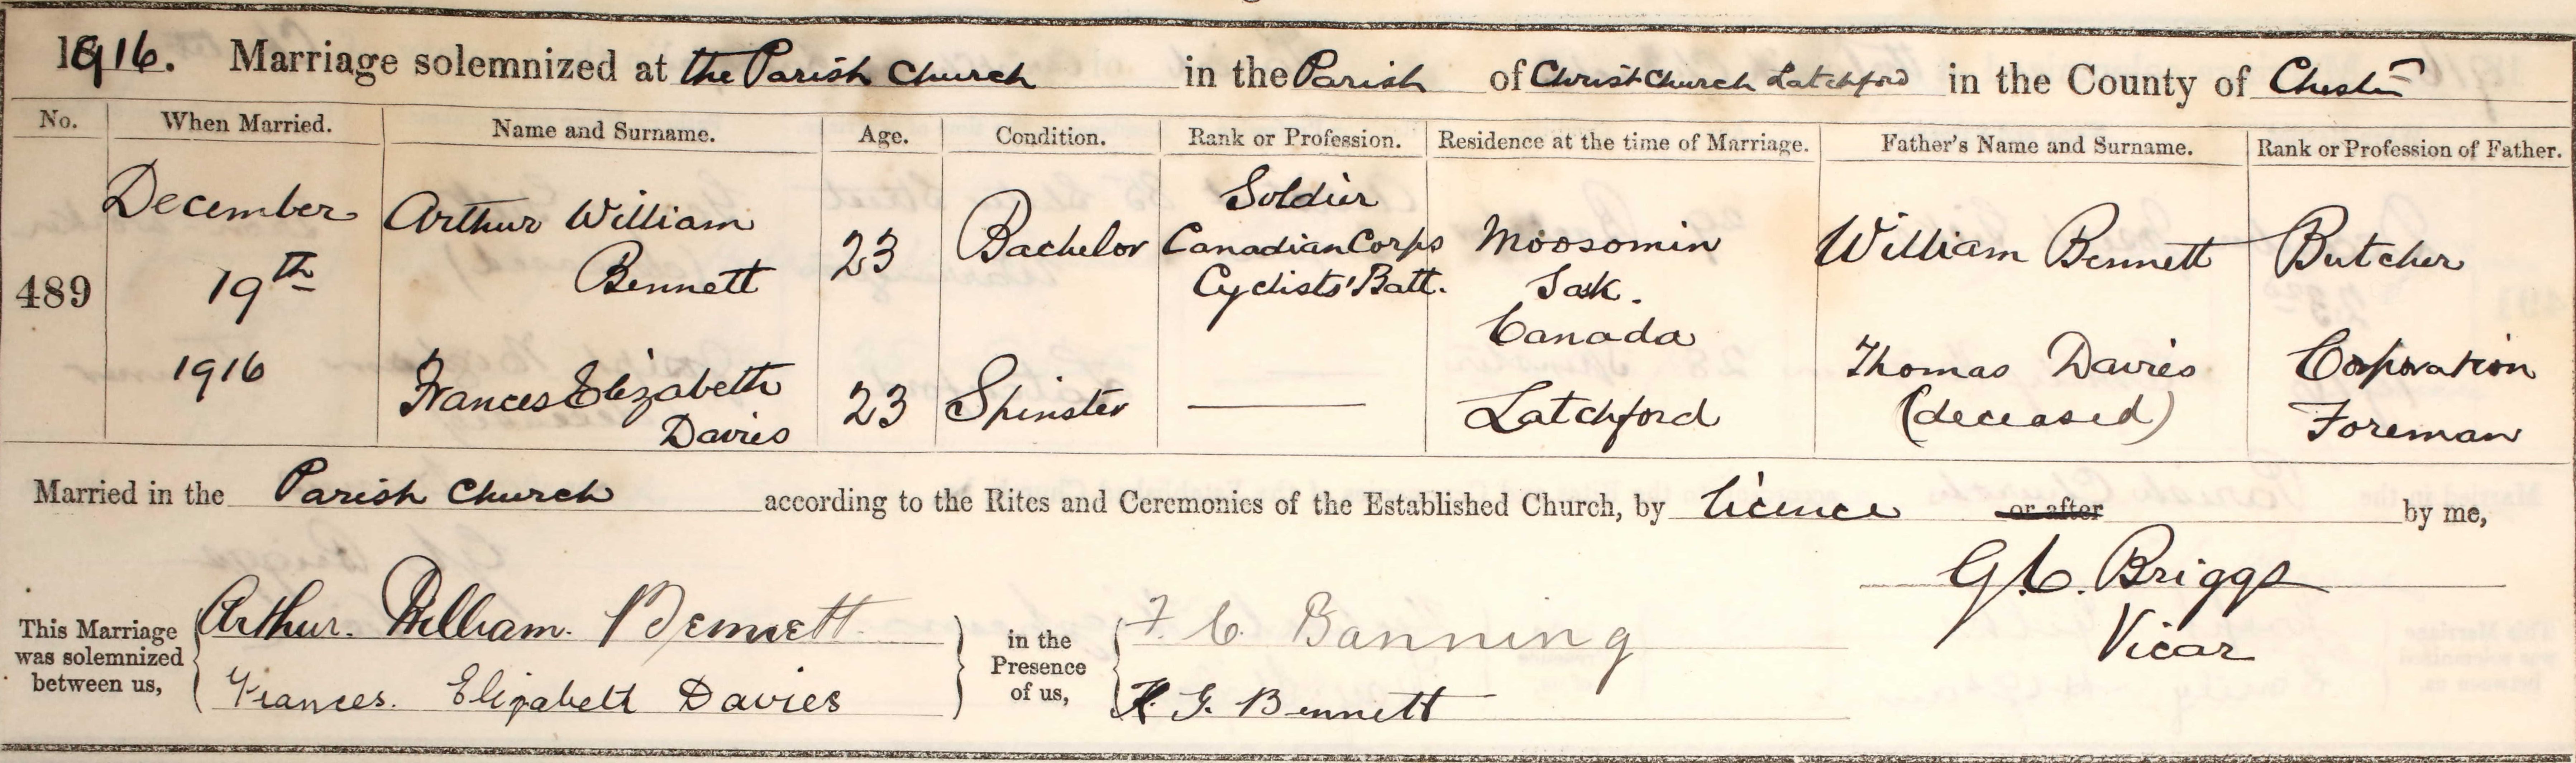 1916. Marriage solemnized at the Parish Church in the Parish of Christ Church Latchford in the County of Chester
No. When Married. Name and Surname. Age. Condition. Rank or Profession. Residence at the time of Marriage. Father's Name and Surname. Rank or Profession of Father.
489
December
19th
1916
Arthur William
Bennett
23
Bachelor
Soldier
Canadian Corps
Cyclists' Batt.
Moosomin
Sask.
Canada
William Bennett
Butcher
Frances Elizabeth
Davies
23
Spinster
Latchford
Thomas Davies
(deceased)
Corporation
Foreman
Married in the Parish Church according to the Rites and Ceremonies of the Established Church, by licence or after by me,
This Marriage
was solemnized
between us,
Arthur. William. Bennett.
Frances. Elizabeth Davies
in the
Presence
of us,
F. C. Banning
G. Bennett
Briggs
Vicar